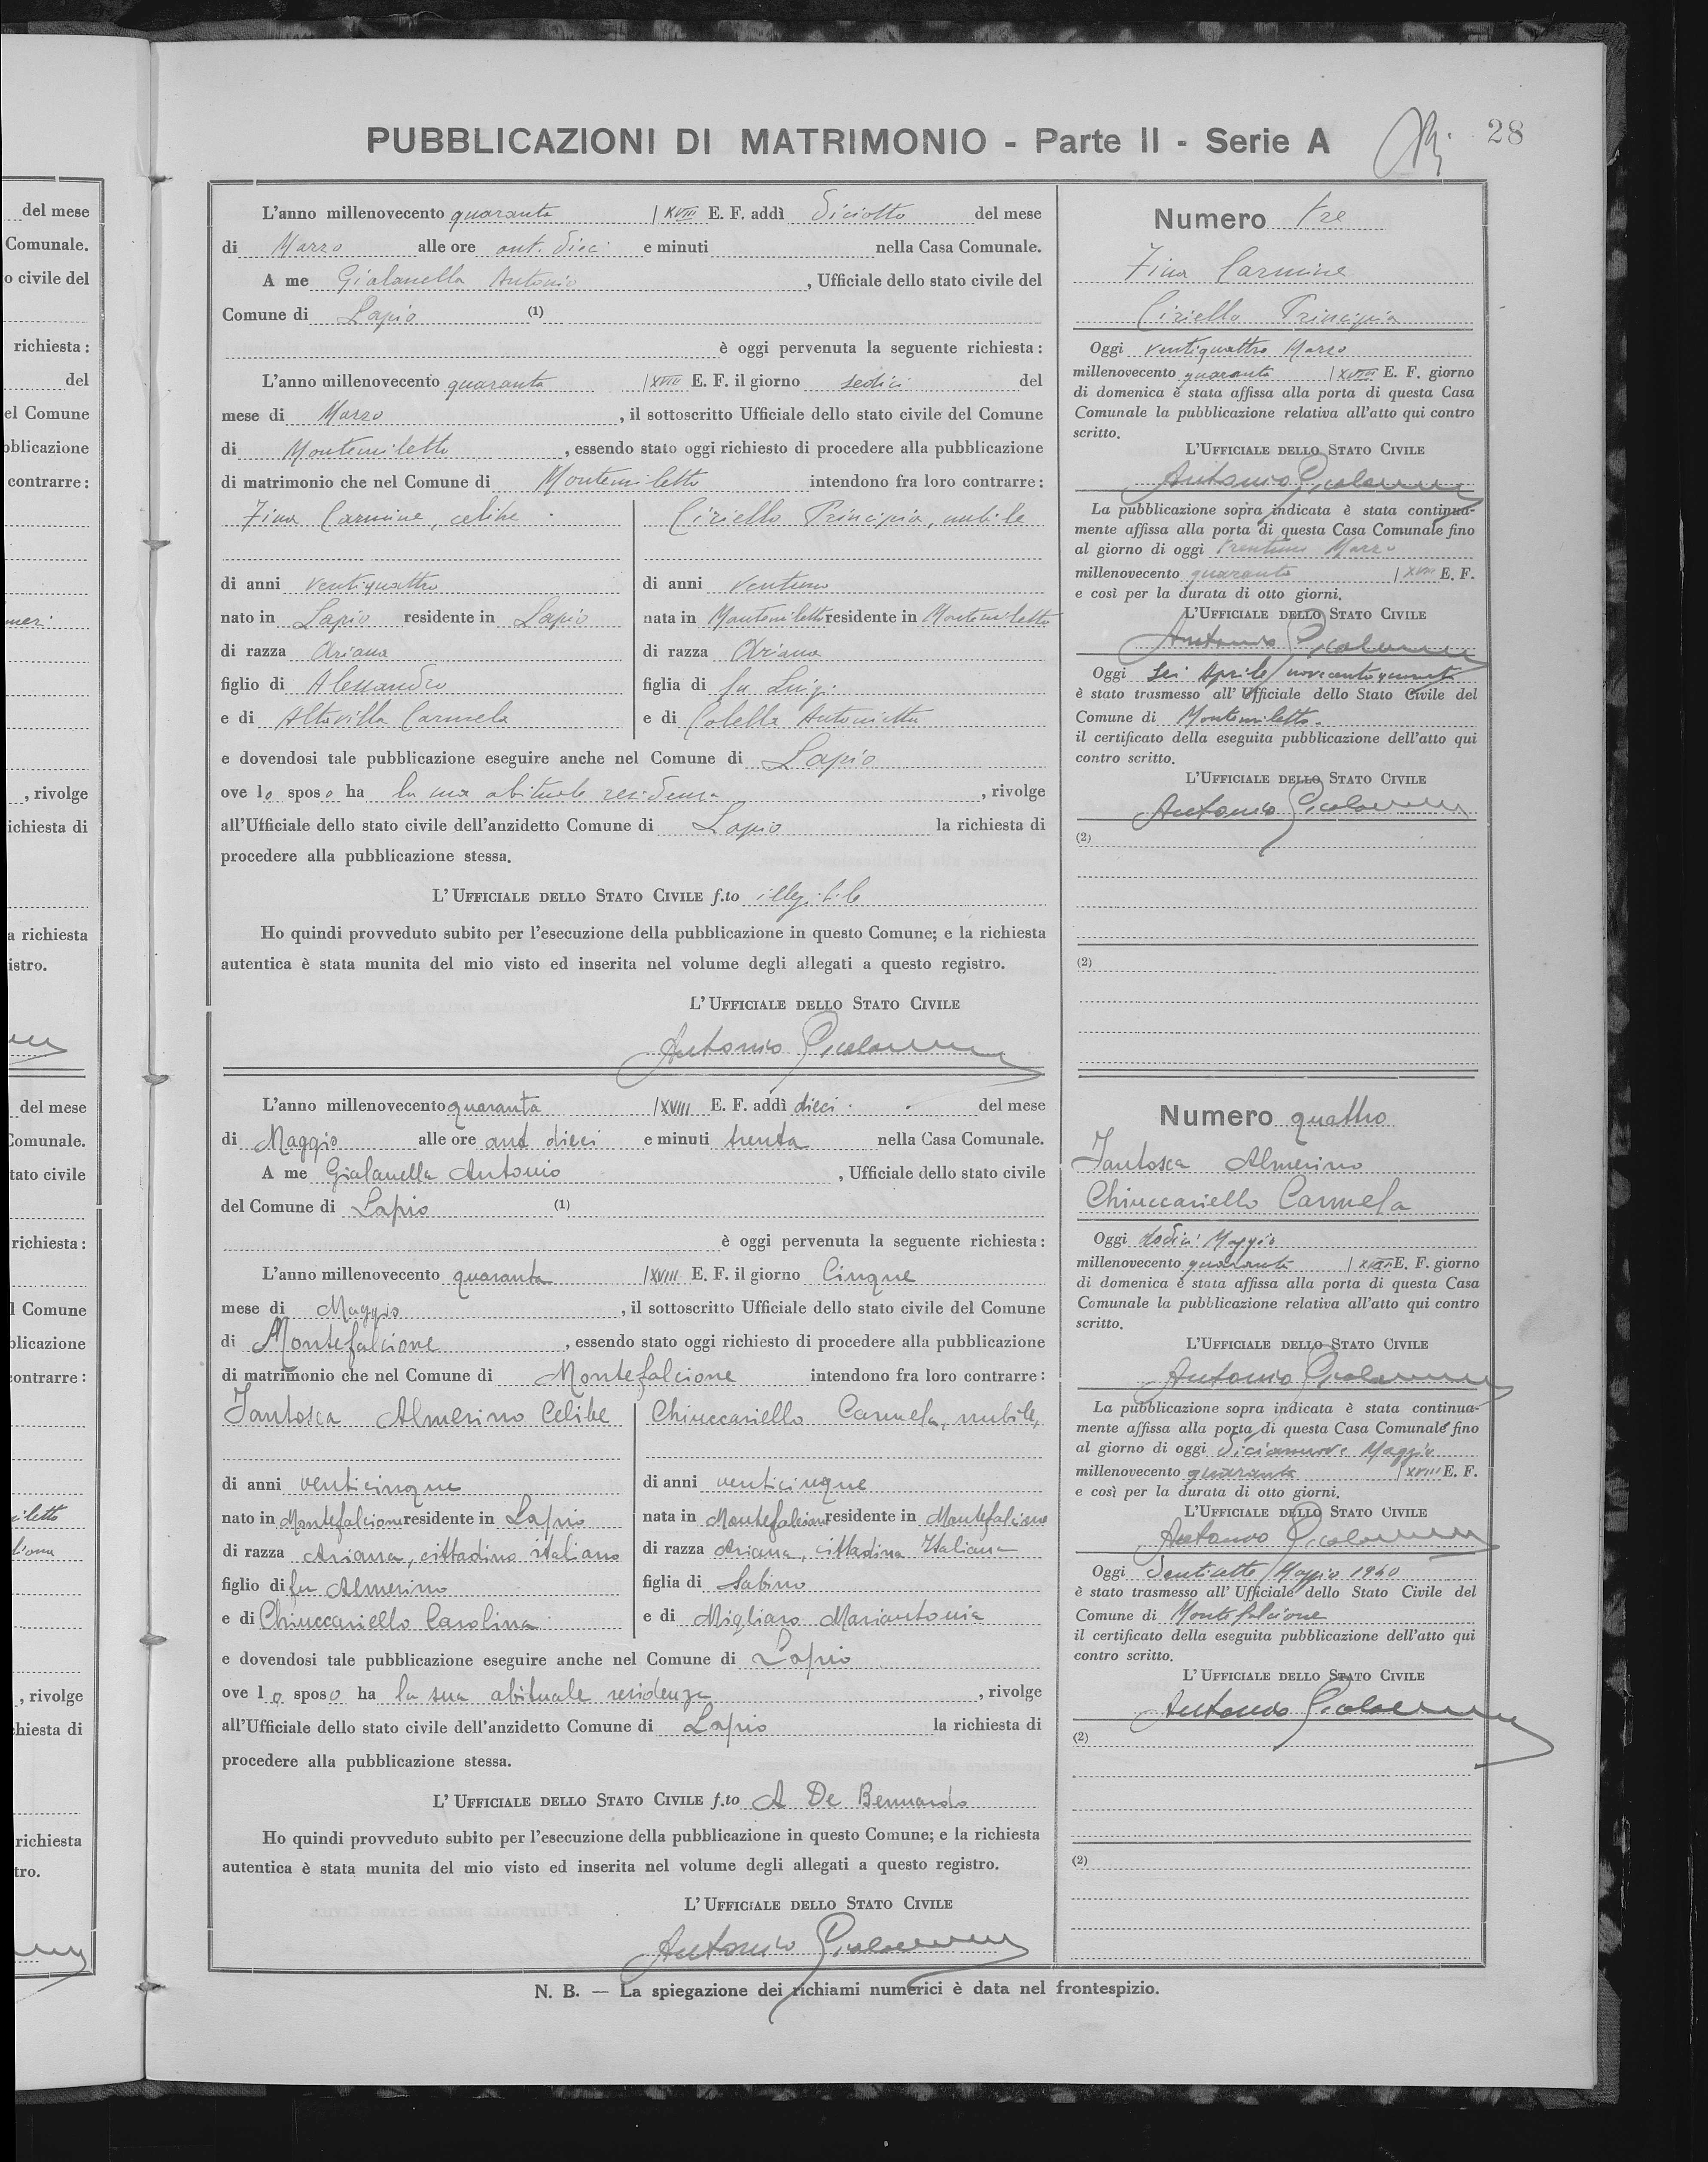 del mese
Comunale.
o civile del
richiesta :
del
el Comune
bblicazione
contrarre :
, rivolge
ichiesta di
a richiesta
istro.
del mese
Comunale.
tato civile
richiesta :
l Comune
blicazione
contrarre :
iletto
, rivolge
hiesta di
richiesta
tro.
PUBBLICAZIONI DI MATRIMONIO - Parte II - Serie A
28
L'anno millenovecento quaranta / XVIII E. F. addì diciotto del mese
di Marzo alle ore ant. dieci e minuti nella Casa Comunale.
A me Gialanella Antonio , Ufficiale dello stato civile del
Comune di Lapio (1)
è oggi pervenuta la seguente richiesta :
L'anno millenovecento quaranta / XVIII E. F. il giorno sedici del
mese di Marzo , il sottoscritto Ufficiale dello stato civile del Comune
di Montemiletto , essendo stato oggi richiesto di procedere alla pubblicazione
di matrimonio che nel Comune di Montemiletto intendono fra loro contrarre :
Zina Carmine, celibe
di anni ventiquattro
nato in Lapio residente in Lapio
di razza Ariana
figlio di Alessandro
e di Altavilla Carmela
Ciriello Principia, nubile
di anni ventuno
nata in Montemiletto residente in Montemiletto
di razza Ariana
figlia di fu Luigi
e di Colella Antonietta
e dovendosi tale pubblicazione eseguire anche nel Comune di Lapio
ove lo sposo ha la sua abituale residenza , rivolge
all'Ufficiale dello stato civile dell'anzidetto Comune di Lapio la richiesta di
procedere alla pubblicazione stessa.
L'Ufficiale dello Stato Civile f.to illegibile
Ho quindi provveduto subito per l'esecuzione della pubblicazione in questo Comune; e la richiesta
autentica è stata munita del mio visto ed inserita nel volume degli allegati a questo registro.
L'Ufficiale dello Stato Civile
Antonio Gialanella
Numero tre
Zina Carmine
Ciriello Principia
Oggi ventiquattro Marzo
millenovecento quaranta / XVIII E. F. giorno
di domenica è stata affissa alla porta di questa Casa
Comunale la pubblicazione relativa all'atto qui contro
scritto.
L'Ufficiale dello Stato Civile
Antonio Gialanella
La pubblicazione sopra indicata è stata continua-
mente affissa alla porta di questa Casa Comunale fino
al giorno di oggi trentuno Marzo
millenovecento quaranta / XVIII E. F.
e così per la durata di otto giorni.
L'Ufficiale dello Stato Civile
Antonio Gialanella
Oggi sei Aprile novecentoquaranta
è stato trasmesso all'Ufficiale dello Stato Civile del
Comune di Montemiletto.
il certificato della eseguita pubblicazione dell'atto qui
contro scritto.
L'Ufficiale dello Stato Civile
Antonio Gialanella
(2)
(2)
L'anno millenovecento quaranta / XVIII E. F. addì dieci del mese
di Maggio alle ore ant dieci e minuti trenta nella Casa Comunale.
A me Gialanella Antonio , Ufficiale dello stato civile
del Comune di Lapio (1)
è oggi pervenuta la seguente richiesta :
L'anno millenovecento quaranta / XVIII E. F. il giorno Cinque
mese di Maggio , il sottoscritto Ufficiale dello stato civile del Comune
di Montefalcione , essendo stato oggi richiesto di procedere alla pubblicazione
di matrimonio che nel Comune di Montefalcione intendono fra loro contrarre :
Iantosca Almerino Celibe
di anni venticinque
nato in Montefalcione residente in Lapio
di razza Ariana, cittadino italiano
figlio di fu Almerino
e di Chiuccariello Carolina
Chiuccariello Carmela, nubile,
di anni venticinque
nata in Montefalcione residente in Montefalcione
di razza Ariana, cittadina Italiana
figlia di Sabino
e di Migliaro Mariantonia
e dovendosi tale pubblicazione eseguire anche nel Comune di Lapio
ove lo sposo ha la sua abituale residenza , rivolge
all'Ufficiale dello stato civile dell'anzidetto Comune di Lapio la richiesta di
procedere alla pubblicazione stessa.
L'Ufficiale dello Stato Civile f.to A De Bernardo
Ho quindi provveduto subito per l'esecuzione della pubblicazione in questo Comune; e la richiesta
autentica è stata munita del mio visto ed inserita nel volume degli allegati a questo registro.
L'Ufficiale dello Stato Civile
Antonio Gialanella
Numero quattro
Iantosca Almerino
Chiuccariello Carmela
Oggi dodici Maggio
millenovecento quaranta / XVIII E. F. giorno
di domenica è stata affissa alla porta di questa Casa
Comunale la pubblicazione relativa all'atto qui contro
scritto.
L'Ufficiale dello Stato Civile
Antonio Gialanella
La pubblicazione sopra indicata è stata continua-
mente affissa alla porta di questa Casa Comunale fino
al giorno di oggi diciannove Maggio
millenovecento quaranta / XVIII E. F.
e così per la durata di otto giorni.
L'Ufficiale dello Stato Civile
Antonio Gialanella
Oggi Maggio 1940
è stato trasmesso all'Ufficiale dello Stato Civile del
Comune di Montefalcione
il certificato della eseguita pubblicazione dell'atto qui
contro scritto.
L'Ufficiale dello Stato Civile
Antonio Gialanella
(2)
(2)
N. B. — La spiegazione dei richiami numerici è data nel frontespizio.